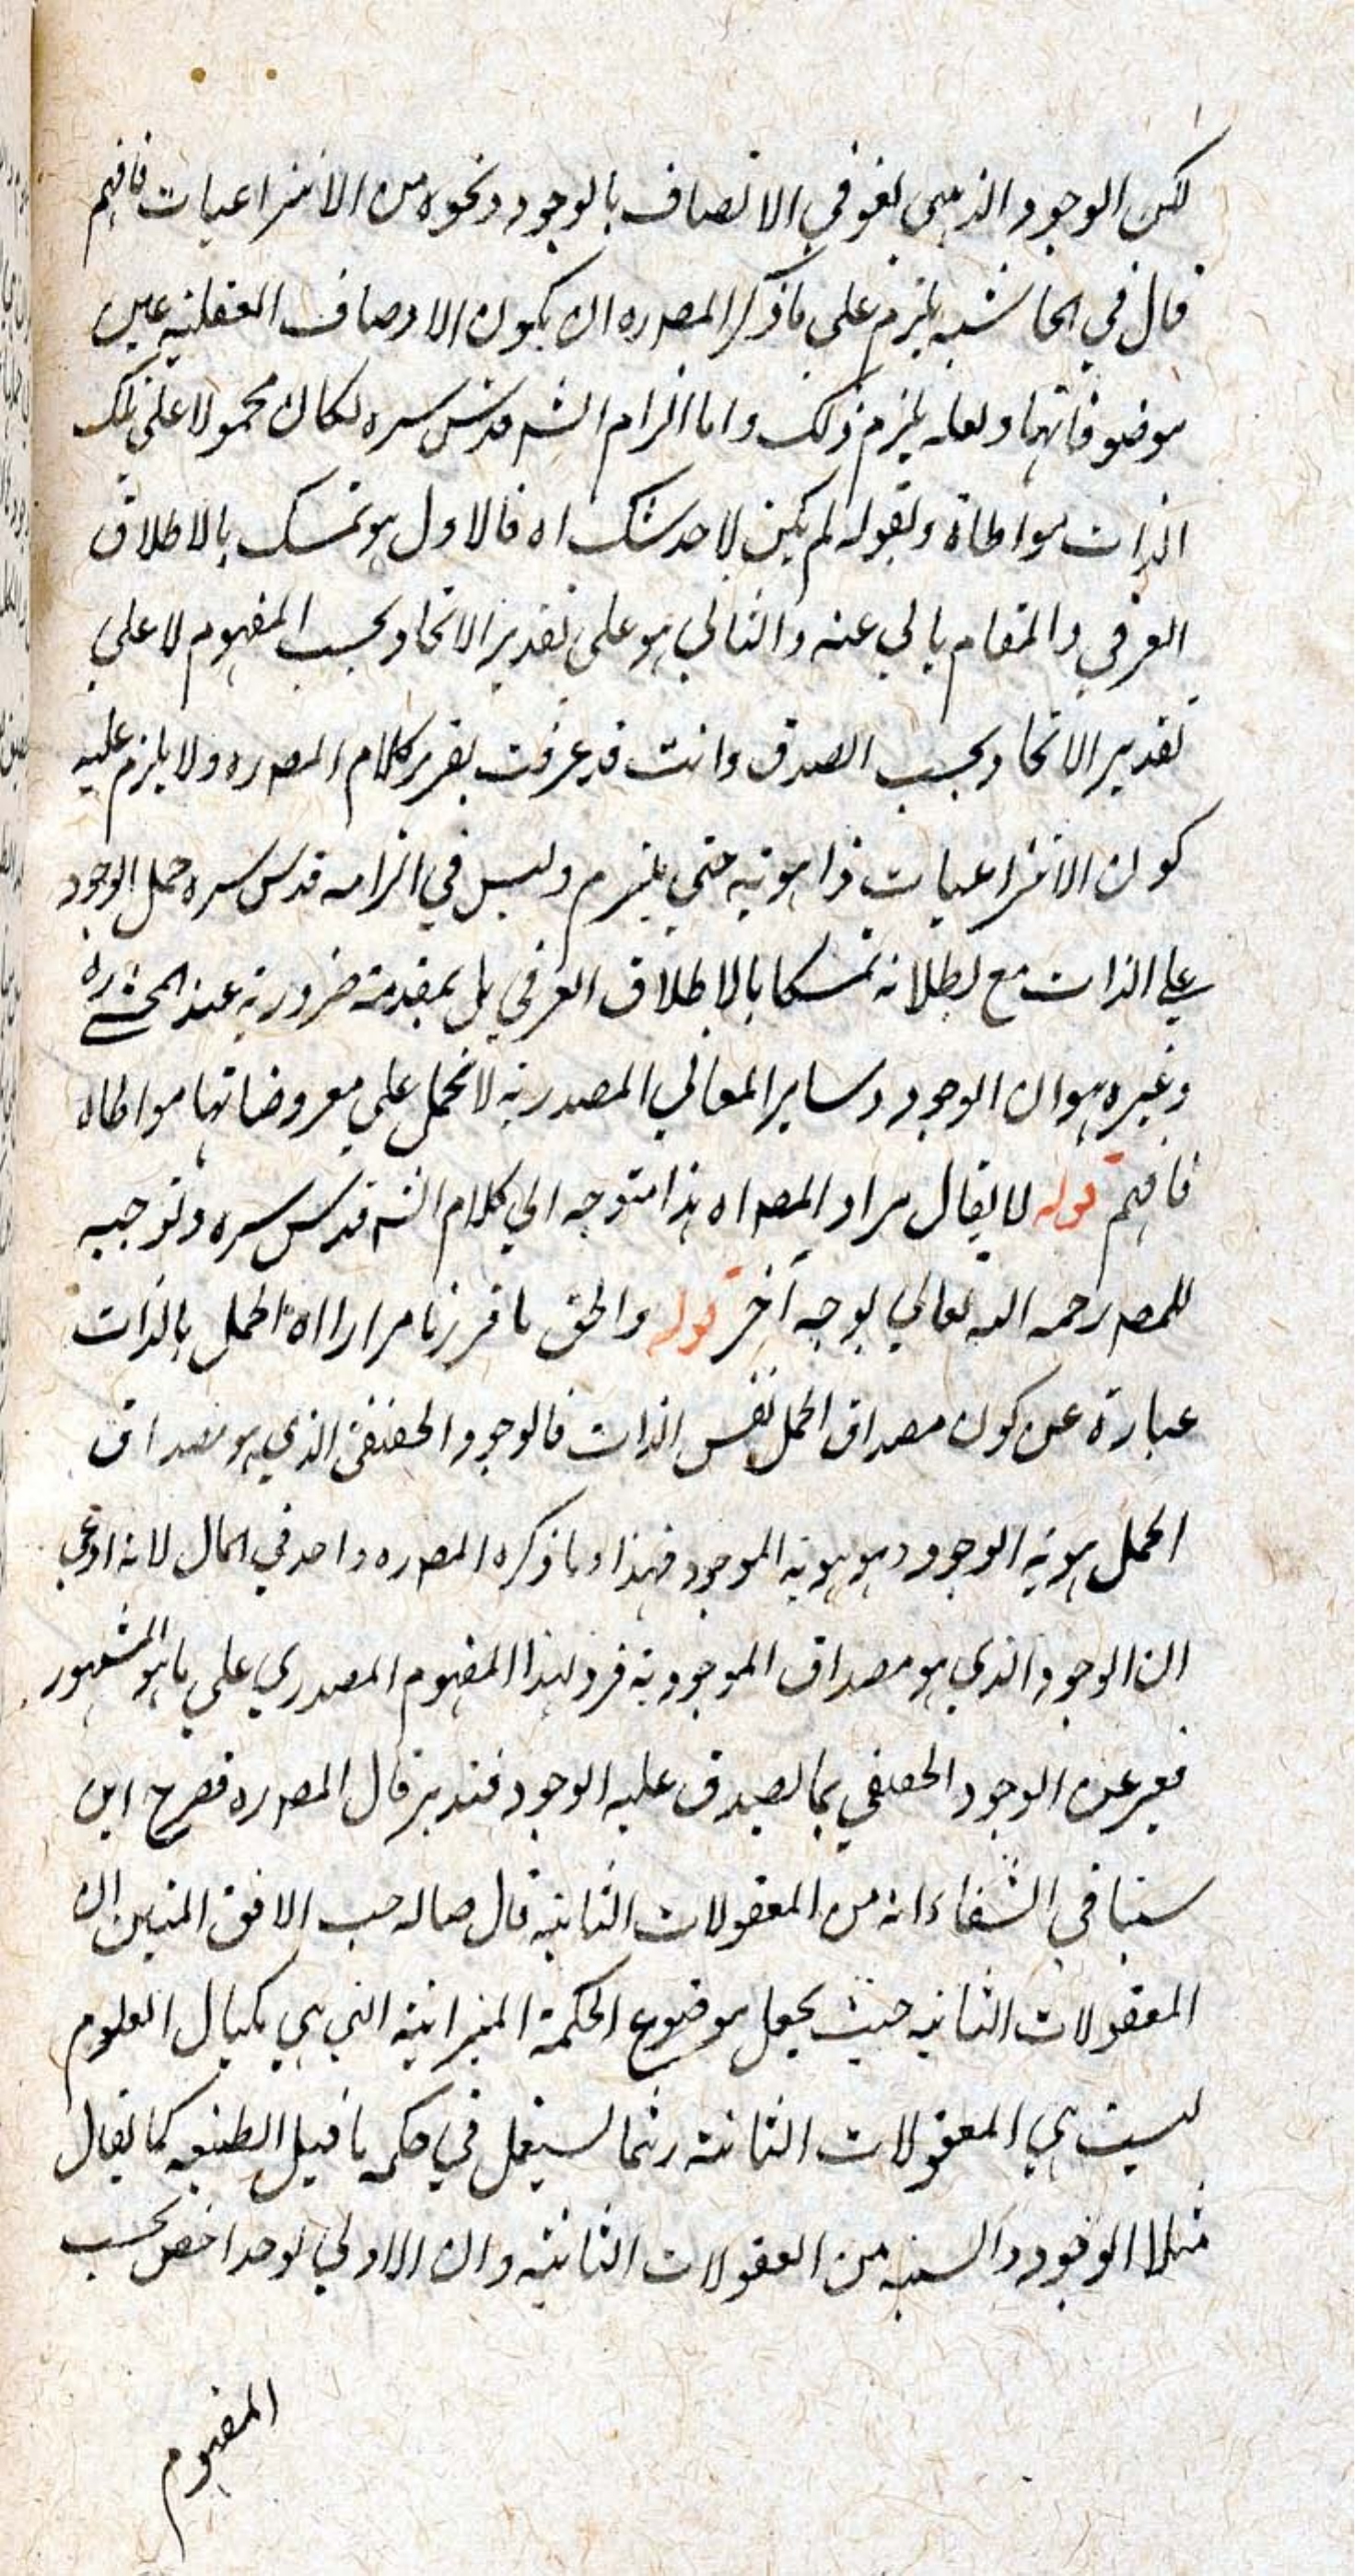 لكن الوجود الذهني لغو في الاتصاف بالوجود ونحوه من الانتزاعيات فافهم
قال في الحاشية يلزم على ما ذكر المصره ان يكون الاوصاف العقلية عين
موضوفاتهما ولعله يلزم ذلك واما الزام الشه قدس سره لكان محمولا على تلك
الذات مواطاة وبقوله لم يكن لاحد شك اه فالاول هو تمسك بالاطلاق
العرفي والمقام يابي عنه والثاني هو على تقدير الاتحاد بحسب المفهوم لا على
تقدير الاتحاد بحسب الصدق وانت قد عرفت تقرير كلام المصره ولا يلزم عليه
كون الانتزاعيات ذا هوية حتى يلزم وليس في الزامه قدس سره حمل الوجود
على الذات مع بطلانه تمسكا بالاطلاق العرفي بل بمقدمة ضرورية عند المحشى ره
وغيره هو ان الوجود وساير المعاني المصدرية لا تحمل على معروضاتها مواطاه
فافهم قوله لا يقال مراد المصه اه هذا متوجه الي كلام الشه قدس سره وتوجيه
للمصه رحمه الله تعالي بوجه آخر قوله والحق ما قررنا مرارا اه الحمل بالذات
عبارة عن كون مصداق الحمل نفس الذات فالوجود الحقيقي الذي هو مصداق
الحمل هوية الوجود وهو هوية الموجود فهذا وما ذكره المصره واحد في المال لانه ادعي
ان الوجود الذي هو مصداق الموجودية فرد لهذا المفهوم المصدري على ما هو المشهور
فعبر عن الوجود الحقيقي بما يصدق عليه الوجود فتدبر قال المصره فصرح ابن
سينا في الشفاء انه من المعقولات الثانية قال صاحب الافق المبين ان
المعقولات الثانيه حيث يجعل موضوع الحكمة الميزانية التي هي مكيال العلوم
ليست هي المعقولات الثانية ربما يستعمل في حكمة ما قبل الطبيعه كما يقال
مثلا الوجود والشيئية من العقولات الثانية وان الاولي لوحدا خص بحسب
المفهوم